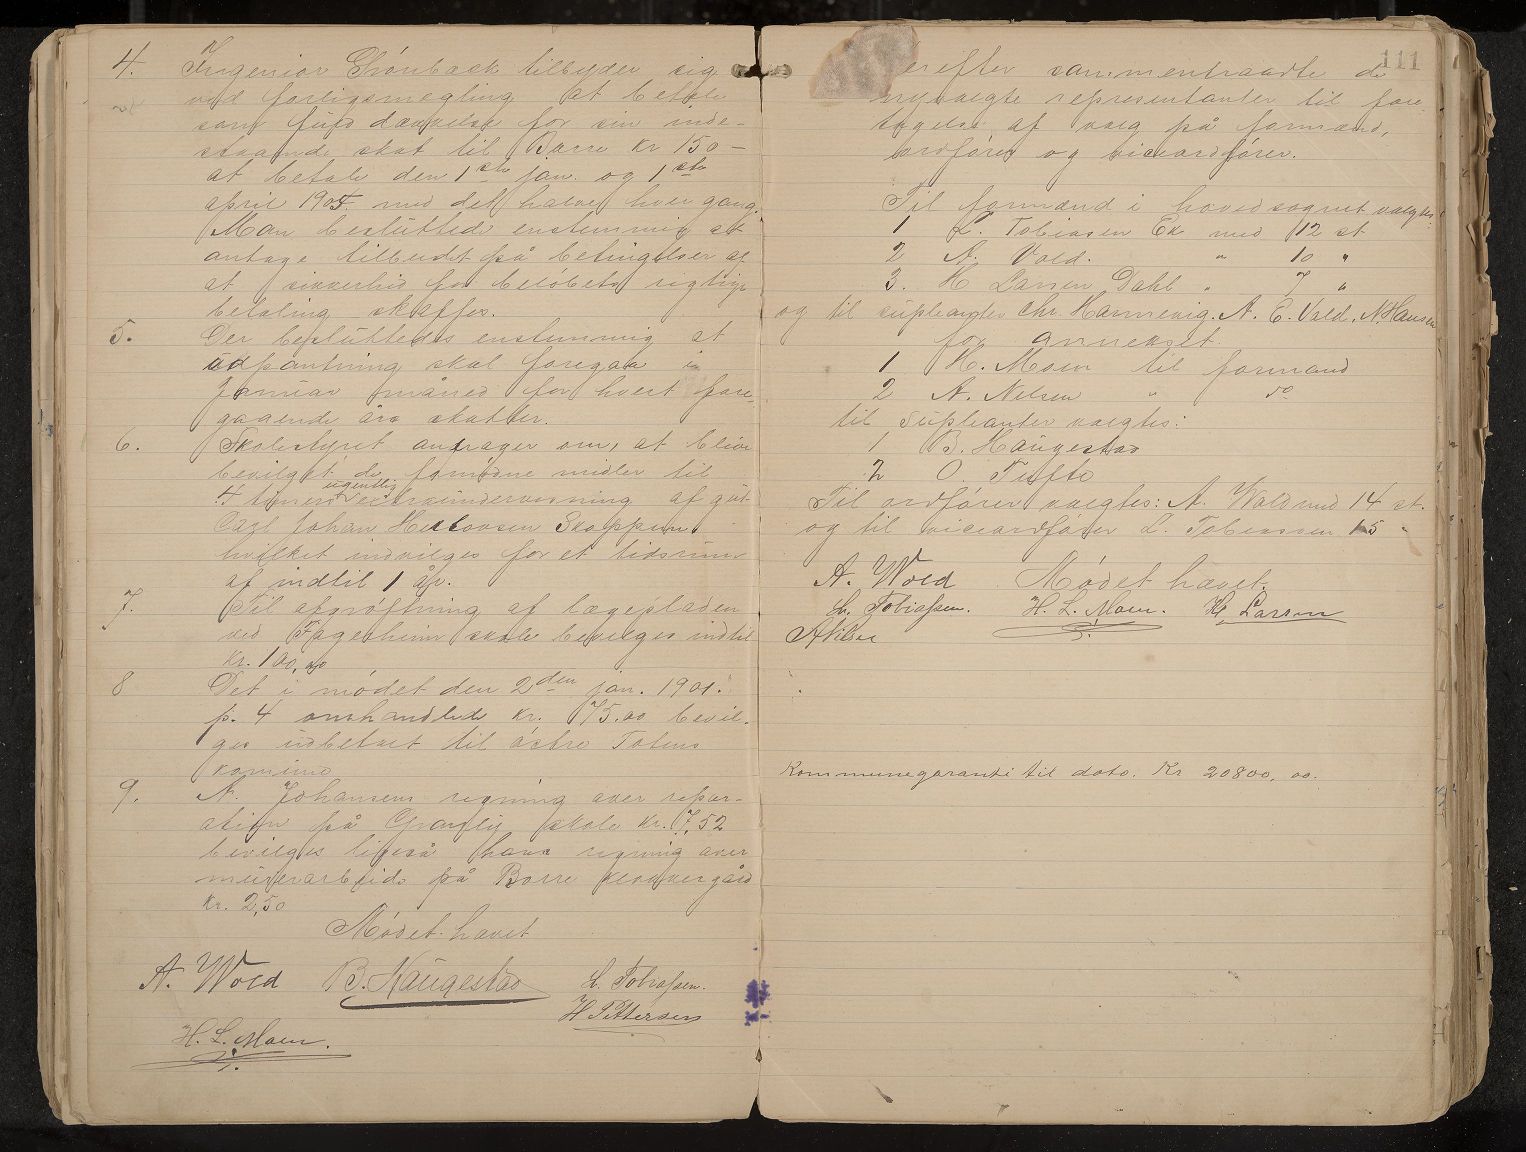 4. Ingeniør Grönbæck tilbyder sig
ved forligsmegling at betale
som fuld dækkelse for sin inde-
staaende skat til Borre kr 150 –
at betale den 1ste jan. og 1ste
april 1905 med det halve hver gang.
Man besluttede enstemmig at
antage tilbudet på betingelser af
at sikkerhed for beløbets rigtige
betaling skaffes.
5. Der besluttedes enstemmig at
udpantning skal foregaa i
Januar måned for hvert fore-
gaaende års skatter.
6. Skolestyret andrager om, at blive
bevilget de fornødne midler til
4 timers ugentlig undervisning af gut
Carl Johan Skoppum
hvilket indvilges for et tidsrum
af indtil 1 år.
7. Til afgrøftning af lægepladen
ved Fagerheim skole bevilges indtil
kr. 100,00
8 Det i mødet den 2den jan. 1901.
p. 4 omhandlede kr. 75.00 bevil-
ges udbetalt til østre Totens
komune
9. A. Johansens regning over repar-
ation på skole kr. 7,52
bevilges ligeså hans regning over
murerarbeide på Borre klokkergård
kr. 2,50
Mødet hævet
A. Wold B. Haugestad L. Tobiassen.
H Pettersen
H. L. Moen.
111
erefter sammentraadte de
nyvalgte representanter til fore
tagelse af valg på formænd,
ordfører og viceordfører.
Til formænd i hovedsognet valgtes:
1 L. Tobiasen Ek med 12 st
2 A. Vold. " 10 "
3. H Larsen Dahl " 7 "
og til supleanter Chr. Hannevig. A. E. Vold. N. Hansen
for annekset.
1 H. Moen til formand
2 A. Nelsen " do
til supleanter valgtes:
1 B. Haugestad
2 O. Tufte
Til ordfører valgtes: A. Wold med 14 st.
og til viceordfører L. Tobiassen 15 "
A. Wold Mødet hævet.
L. Tobiassen. H. L. Moen. H. Larsen
A Nilsen
Kommunegaranti til dato. Kr 20800,00.